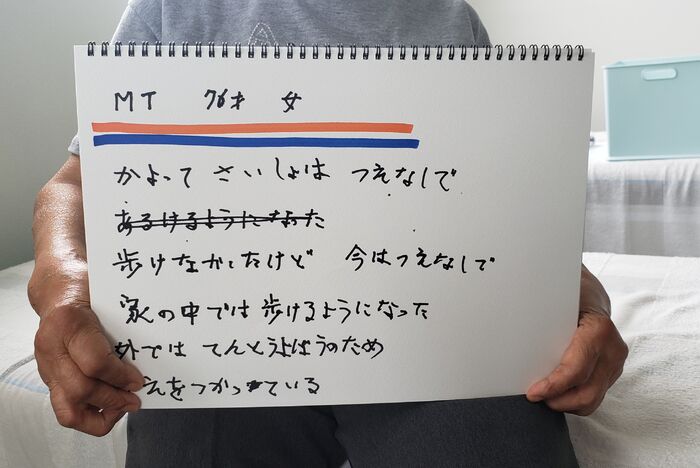 MT 76才 女
かよって さいしょは つえなしで
あるけるようになった
歩けなかったけど 今はつえなしで
家の中では歩けるようになった
外では てんとうよぼうのため
えをつかっている